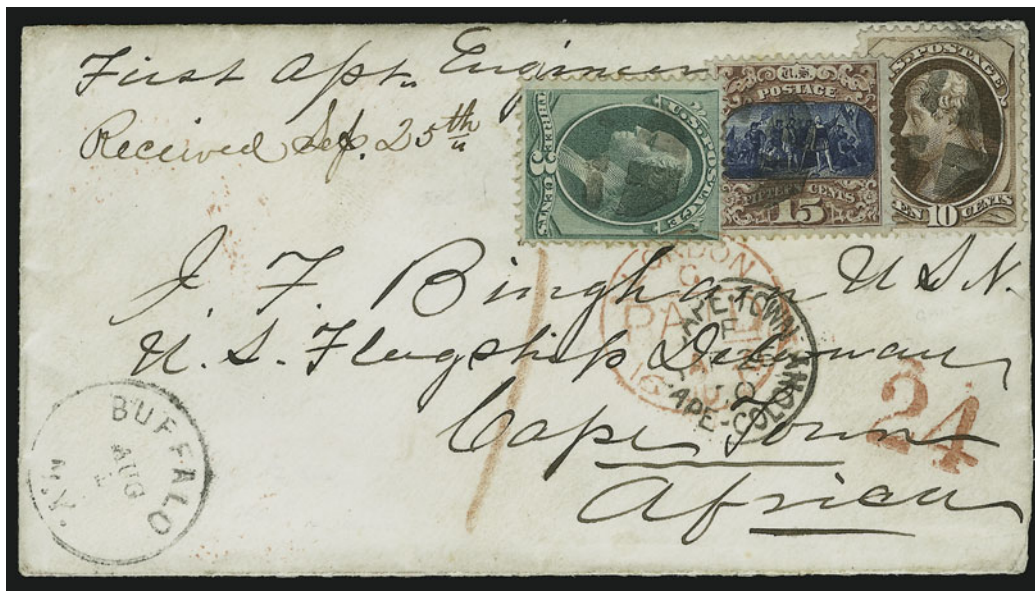 First Asst. Engineer
Received Sep. 25th
THREE 3 CENTS
U.S. POSTAGE
U.S.
POSTAGE
FIFTEEN CENTS
15
U.S. POSTAGE
TEN 10 CENTS
J. F. Bingham U S N.
U. S. Flagship Delaware
Cape Town
Africa
LONDON
C
PAID
16
CAPE-TOWN
CAPE-COLONY
24
BUFFALO
AUG
N.Y.